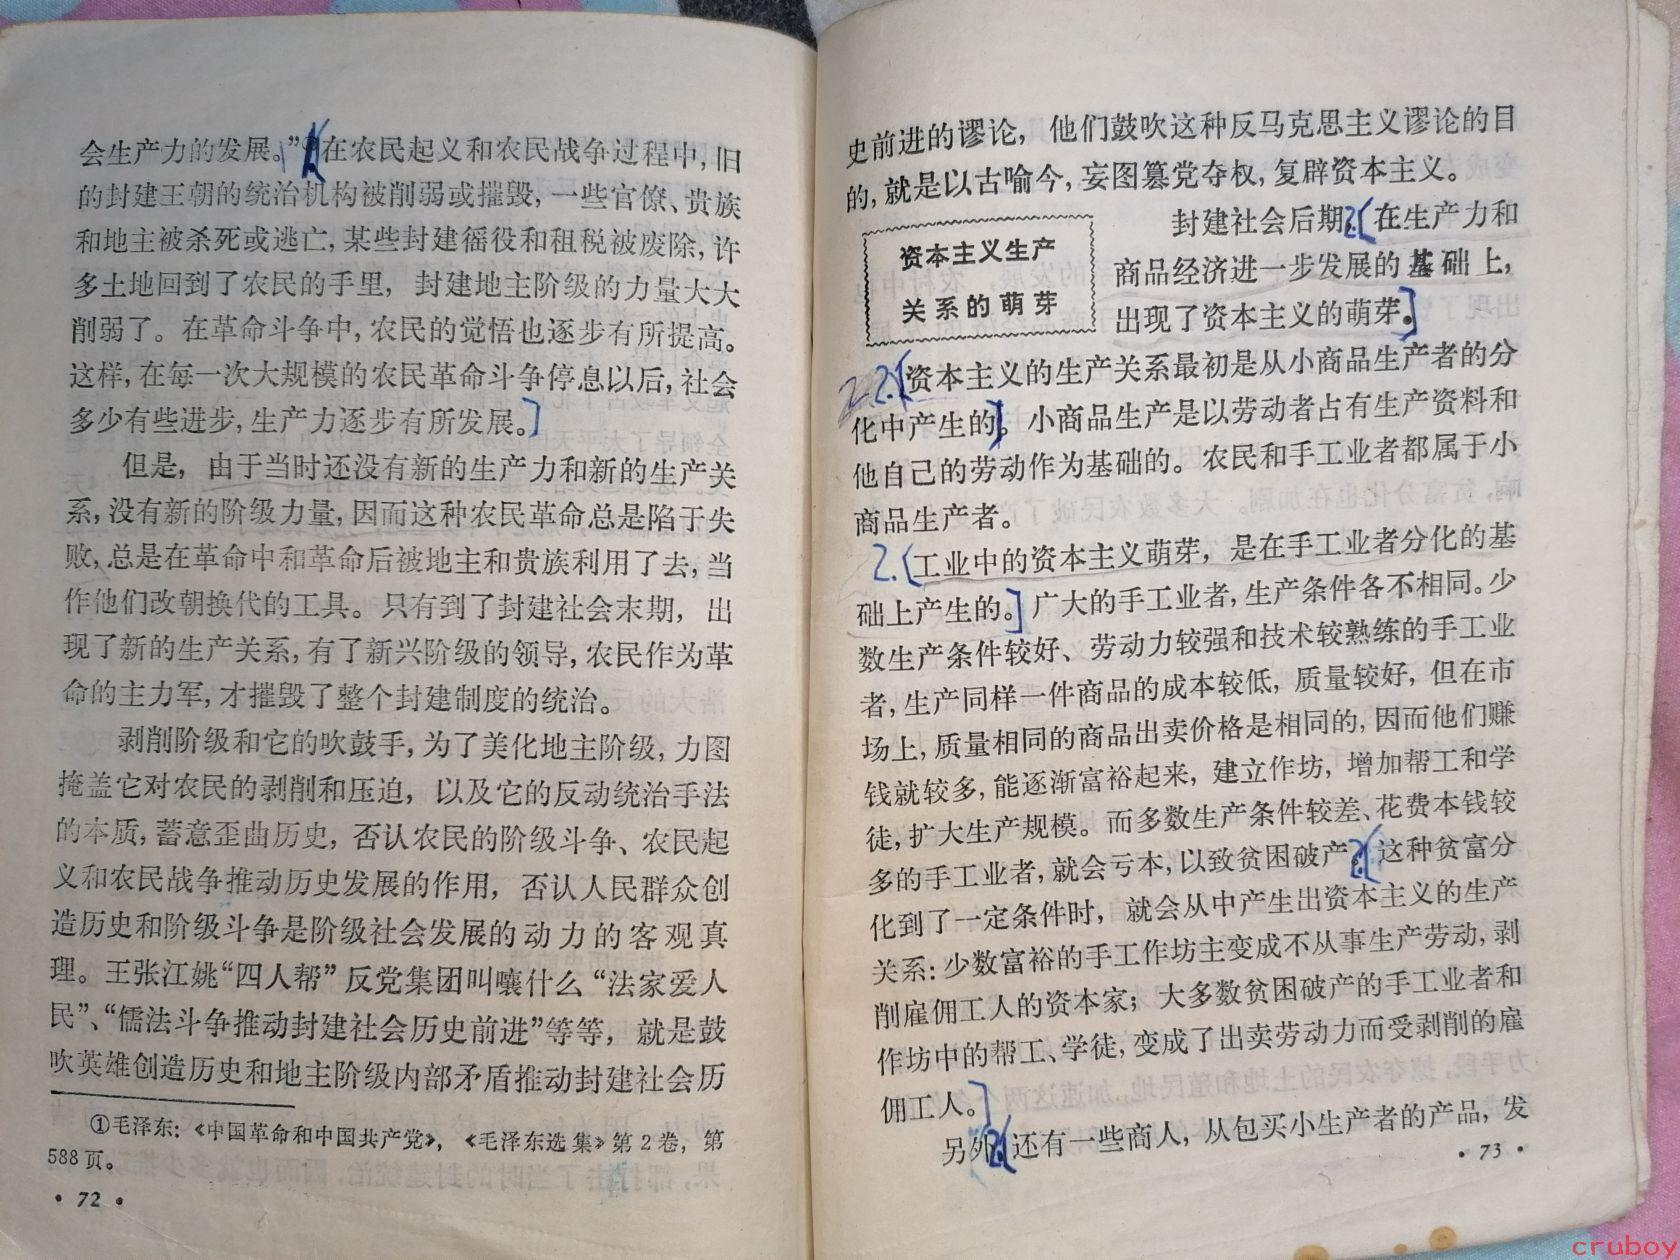 会生产力的发展。”①在农民起义和农民战争过程中，旧
的封建王朝的统治机构被削弱或摧毁，一些官僚、贵族
和地主被杀死或逃亡，某些封建徭役和租税被废除，许
多土地回到了农民的手里，封建地主阶级的力量大大
削弱了。在革命斗争中，农民的觉悟也逐步有所提高。
这样，在每一次大规模的农民革命斗争停息以后，社会
多少有些进步，生产力逐步有所发展。]
但是，由于当时还没有新的生产力和新的生产关
系，没有新的阶级力量，因而这种农民革命总是陷于失
败，总是在革命中和革命后被地主和贵族利用了去，当
作他们改朝换代的工具。只有到了封建社会末期，出
现了新的生产关系，有了新兴阶级的领导，农民作为革
命的主力军，才摧毁了整个封建制度的统治。
剥削阶级和它的吹鼓手，为了美化地主阶级，力图
掩盖它对农民的剥削和压迫，以及它的反动统治手法
的本质，蓄意歪曲历史，否认农民的阶级斗争、农民起
义和农民战争推动历史发展的作用，否认人民群众创
造历史和阶级斗争是阶级社会发展的动力的客观真
理。王张江姚“四人帮”反党集团叫嚷什么“法家爱人
民”、“儒法斗争推动封建社会历史前进”等等，就是鼓
吹英雄创造历史和地主阶级内部矛盾推动封建社会历
①毛泽东：《中国革命和中国共产党》，《毛泽东选集》第2卷，第
588页。
· 72 ·
史前进的谬论，他们鼓吹这种反马克思主义谬论的目
的，就是以古喻今，妄图篡党夺权，复辟资本主义。
资本主义生产
关系的萌芽
封建社会后期，2.(在生产力和
商品经济进一步发展的基础上，
出现了资本主义的萌芽。]
2.2.(资本主义的生产关系最初是从小商品生产者的分
化中产生的]。小商品生产是以劳动者占有生产资料和
他自己的劳动作为基础的。农民和手工业者都属于小
商品生产者。
2.(工业中的资本主义萌芽，是在手工业者分化的基
础上产生的。]广大的手工业者，生产条件各不相同。少
数生产条件较好、劳动力较强和技术较熟练的手工业
者，生产同样一件商品的成本较低，质量较好，但在市
场上，质量相同的商品出卖价格是相同的，因而他们赚
钱就较多，能逐渐富裕起来，建立作坊，增加帮工和学
徒，扩大生产规模。而多数生产条件较差、花费本钱较
多的手工业者，就会亏本，以致贫困破产。2.(这种贫富分
化到了一定条件时，就会从中产生出资本主义的生产
关系：少数富裕的手工作坊主变成不从事生产劳动，剥
削雇佣工人的资本家；大多数贫困破产的手工业者和
作坊中的帮工、学徒，变成了出卖劳动力而受剥削的雇
佣工人。]
另外，2.(还有一些商人，从包买小生产者的产品，发
· 73 ·
cruboy